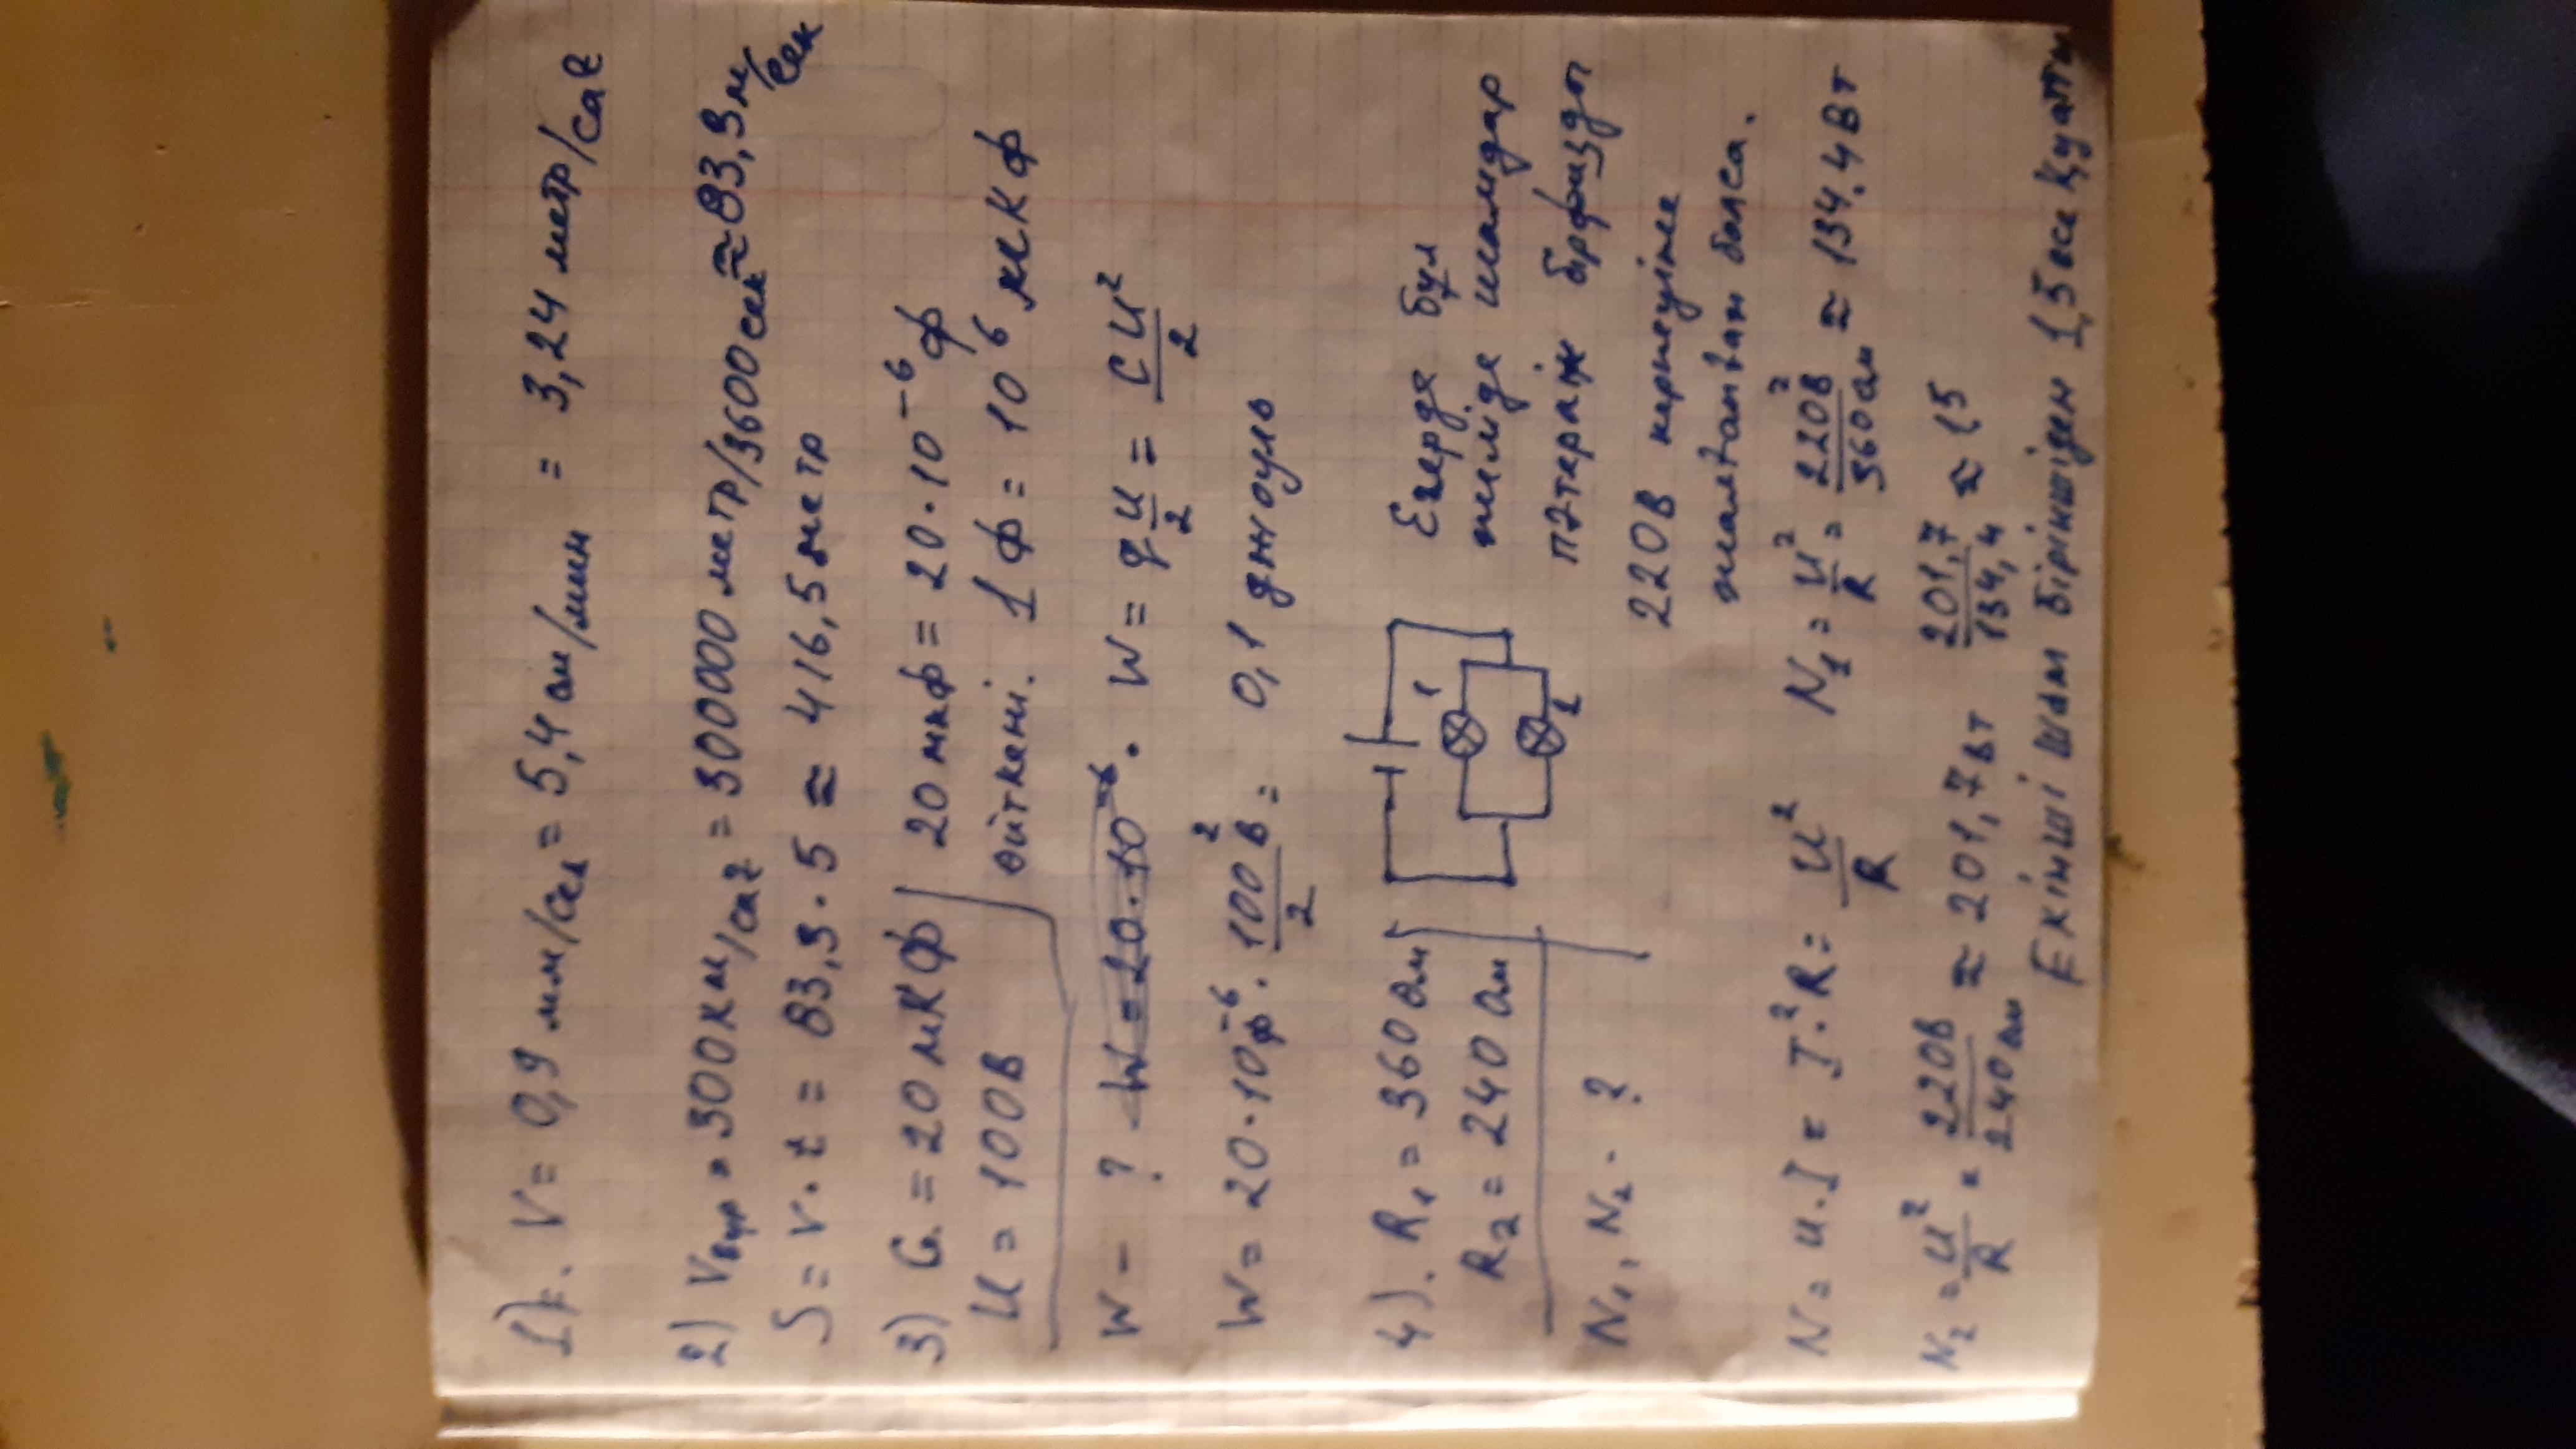 1). V = 0,9 мм/сек = 5,4 см/мин = 3,24 метр/сағ
2) Vвер = 300 км/сағ = 300000 метр/3600 сек ≈ 83,3 м/сек
S = V · t = 83,3 · 5 ≈ 416,5 метр
3) C = 20 мкФ 20 мкф = 20 · 10⁻⁶ ф
U = 100В өйткені. 1 ф = 10⁶ мкф
W - ? W = 20 · 10⁻⁶ · W = q U/2 = CU²/2
W = 20 · 10⁻⁶ф · 100²В/2 = 0,1 джоуль
4). R₁ = 360 Ом
R₂ = 240 Ом
N₁, N₂ - ?
1
2
Егерде бұл
жилде шамдар
пәтердің
220В кернеуіне
жалғанған болса.
N = U · I = I² · R = U²/R N₁ = U²/R = 220²В/360ом ≈ 134.4 Вт
N₂ = U²/R = 220В/240ом ≈ 201,7 вт 201,7/134,4 ≈ 1,5
Екінші шам біріншіден 1,5 есе қуатты